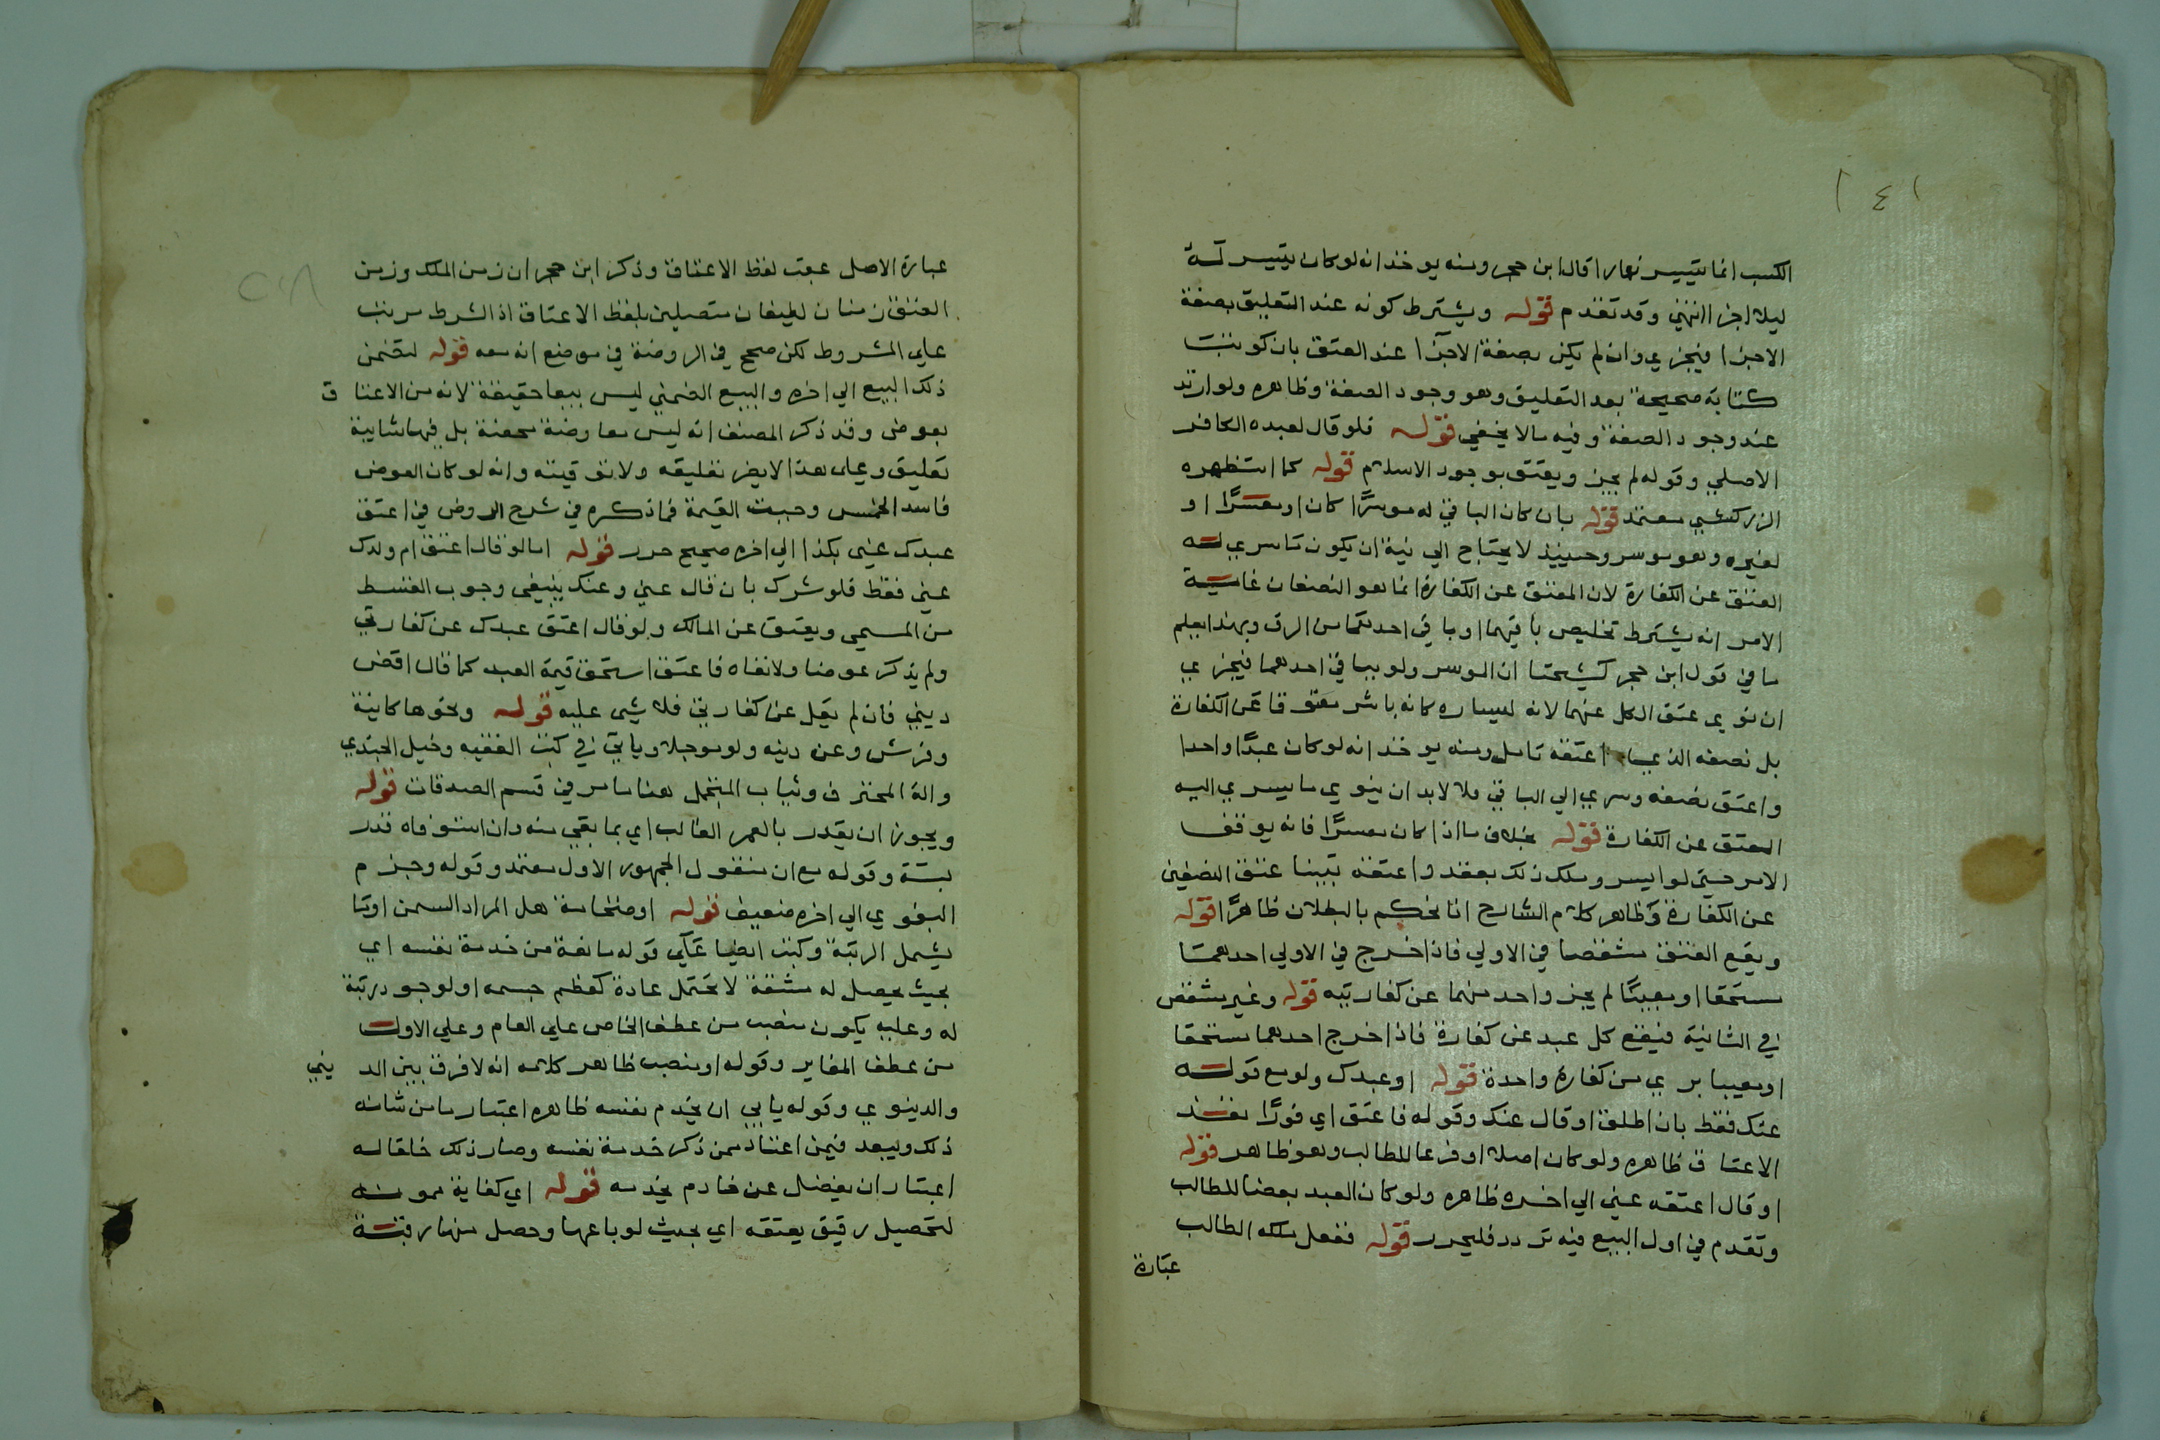 ١٤١
الكسب انما يتيسر نهارا قال ابن حجر ومنه يوخذ انه لو كان يتيسر له
ليلا اجزا انتهي وقد تقدم قوله ويشترط كونه عند التعليق بصفة
الاجزا فيجزي وان لم يكن بصفة الاجزا عند العتق بان كوتبت
كتابة صحيحة بعد التعليق وهو وجود الصفة وظاهره ولو ارتد
عند وجود الصفة وفيه مالا يخفي قوله فلو قال لعبده الكافر
الاصلي وقوله لم يجز ويعتق بوجود الاسلام قوله كما استظهره
الزركشي معتمد قوله بان كان الباقي له موسرًا كان او معسرًا او
لغيره وهو موسر وحينيذ لا يحتاج الي نية ان يكون ما سري له
العتق عن الكفارة لان المعتق عن الكفارة انما هو النصفان غاية
الامر انه يشترط تخليص باقيهما او باقي احدهما من الرق وبهذا يعلم
ما في قول ابن حجر كشيخنا ان الموسر ولو بباقي احدهما فيجزي
ان نوي عتق الكل عنهما لانه ليساره كانه باشر عتق قاعن الكفارة
بل نصفه الذي اعتقه تامل ومنه يوخذ انه لو كان عبدًا واحدا
واعتق نصفه وسري الي الباقي فلا لابد ان ينوي ما يسري اليه
العتق عن الكفارة قوله بخلاف ما اذا كان معسرًا فانه يوقف
الامر حتي لو ايسر وملك ذلك بعقد واعتقه تبينا عتق النصفين
عن الكفارة وظاهر كلام الشارح انا نحكم بالبطلان ظاهرًا قوله
ويقع العتق مشقصا في الاولي فاذا خرج في الاولي احدهما
مستحقا او معيبًا لم يجز واحد منهما عن كفارتيه قوله وغير مشقص
في الثانية فيقع كل عبد عن كفارة فاذا خرج احدهما مستحقا
او معيبا بري من كفارة واحدة قوله او عبدك ولو مع قوله
عنك فقط بان اطلق او قال عنك وقوله فاعتق اي فورًا نفذ
الاعتاق ظاهره ولو كان اصلا او فرعا للطالب وهو ظاهر قوله
او قال اعتقه عني الي اخره ظاهره ولو كان العبد بعضا للطالب
وتقدم في اول البيع فيه تردد فليحرر قوله ففعل ملكه الطالب
عبارة
عبارة الاصل عقب لفظ الاعتاق وذكر ابن حجر ان زمن الملك وزمن
العتق زمنان لطيفان متصلين بلفظ الاعتاق اذ الشرط مرتب
علي المشروط لكن صحح في الروضة في موضع انه معه قوله لتضمن
ذلك البيع الي اخره والبيع الضمني ليس ببيعا حقيقة لانه من الاعتاق
بعوض وقد ذكر المصنف انه ليس معاوضة محضة بل فيها شايبة
تعليق وعلي هذا لا يضر تعليقه ولا توقيته وانه لو كان العوض
فاسدا الخمس وجبت القيمة فما ذكره في شرح الروض في اعتق
عبدك عني بكذا الي اخره صحيح حرر قوله اما لو قال اعتق ام ولدك
عني فقط فلو شرك بان قال عني وعنك ينبغي وجوب القسط
من المسمي ويعتق عن المالك ولو قال اعتق عبدك عن كفارتي
ولم يذكر عوضا ولا نفاه فاعتق استحق قيمة العبد كما قال اقض
ديني فان لم يقل عن كفارتي فلا شي عليه قوله ونحوها كانية
وفرش وعن دينه ولو موجلا وياتي في كتب الفقيه وخيل الجندي
والة المحترف وثياب المتجمل هنا ما مر في قسم الصدقات قوله
ويجوز ان يقدر بالعمر الغالب اي بما بقي منه وان استوفاه قدر
بسنة وقوله مع ان منقول الجمهور الاول معتمد وقوله وجزم
البغوي الي اخره ضعيف قوله او ضخامة هل المراد السمن او ما
يشمل الرتبة وكتب ايضا علي قوله مانعة من خدمة نفسه اي
بحيث يحصل له مشقة لا تحتمل عادة كعظم جسمه او لوجود رتبة
له وعليه يكون منصب من عطف الخاص علي العام وعلي الاول
من عطف المغاير وقوله او منصب ظاهر كلامه انه لا فرق بين الديني
والدينوي وقوله يابي ان يخدم نفسه ظاهره اعتبار ما من شانه
ذلك ويبعد فيمن اعتاد ممن ذكر خدمة نفسه وصار ذلك خلقا له
اعتبار ان يفضل عن خادم يخدمه قوله اي كفاية مونة
لتحصيل رقيق يعتقه اي بحيث لو باعها وحصل منها رقبة